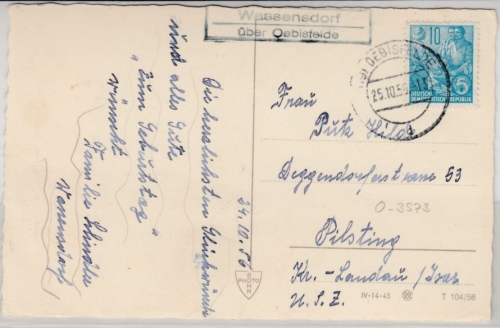 Wassensdorf
über Oebisfelde
10
DEUTSCHE
DEMOKRATISCHE REPUBLIK
OEBISFELDE
25.10.56
24.10.56
Die herzlichsten Glückwünsche
und alles Gute
"zum Geburtstag"
wünscht
Familie
Frau
Putz Hilda
Deggendorferstrasse 53
O-3573
Pilsting
Kr.- Landau / Isar
U.S.Z.
PHOTO
IV-14-45
T 104/56